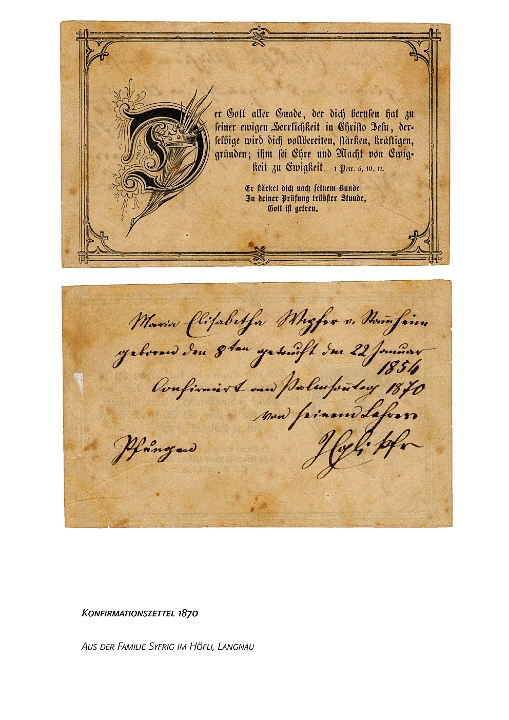 Der Gott aller Gnade, der dich berufen hat zu
seiner ewigen Herrlichkeit in Christo Jesu, der-
selbige wird dich vollbereiten, stärken, kräftigen,
gründen; ihm sei Ehre und Macht von Ewig-
keit zu Ewigkeit. 1 Petr. 5, 10. 11.
Er stärket dich nach seinem Bunde
In deiner Prüfung trübster Stunde,
Gott ist getreu.
Maria Elisabetha Wipfer v. Stammheim
geboren den 8ten getauft den 22 Januar
1854
Confirmirt am Palmsonntag 1870
von seinem Lehrer
Pfungen
Konfirmationszettel 1870
Aus der Familie Syfrig im Höfli, Langnau